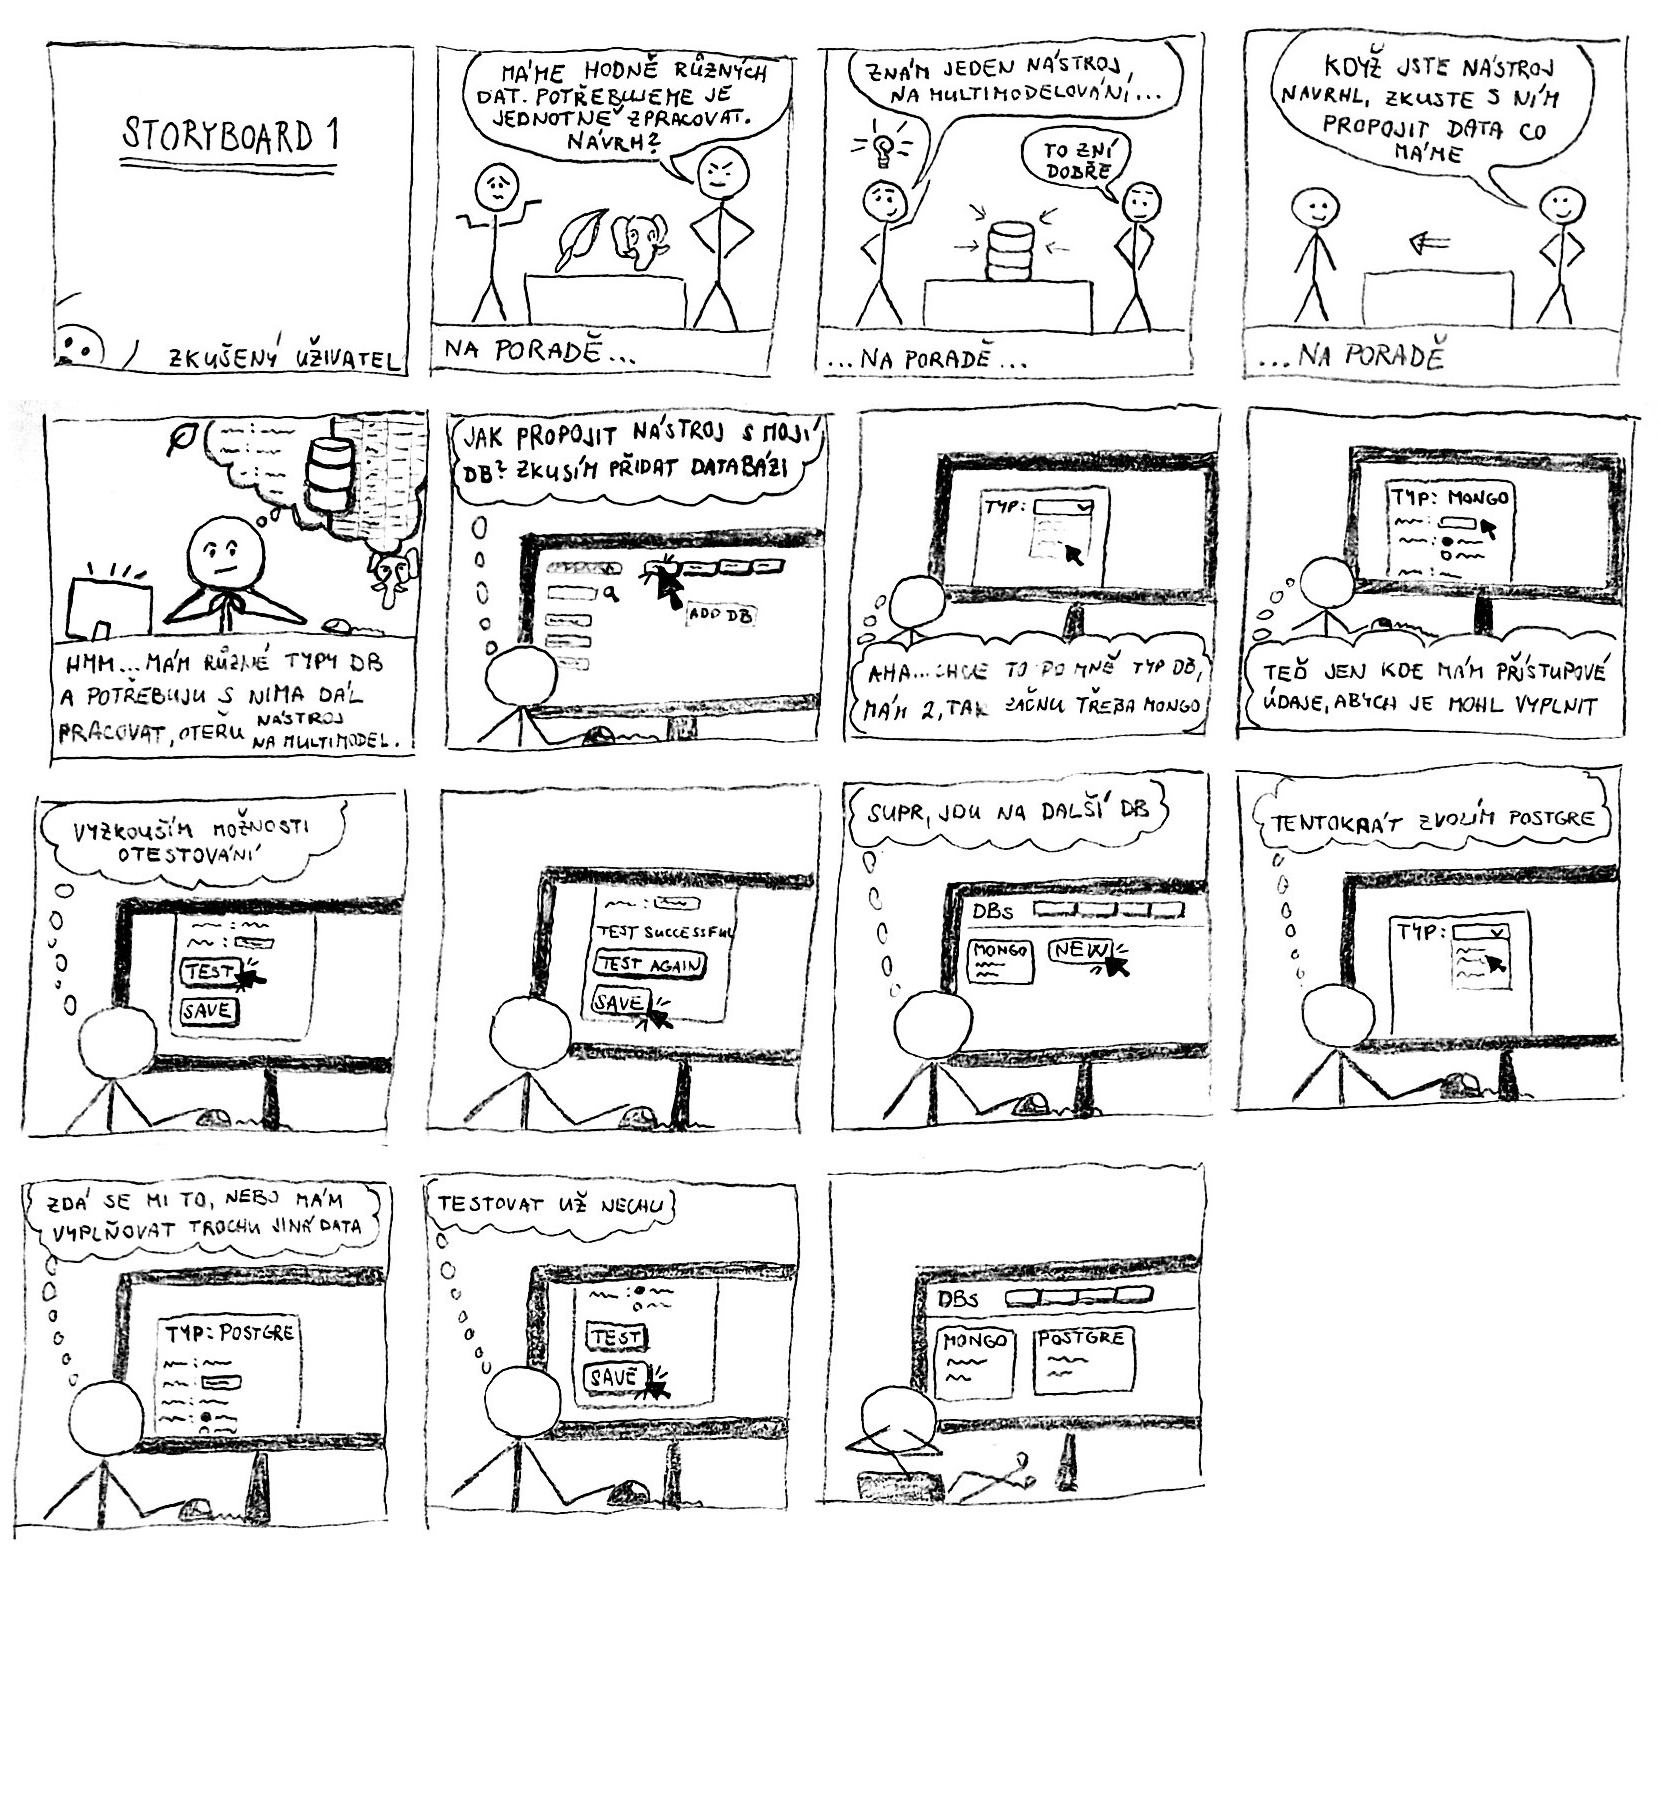 STORYBOARD 1
ZKUŠENÝ UŽIVATEL
MÁME HODNĚ RŮZNÝCH
DAT. POTŘEBUJEME JE
JEDNOTNĚ ZPRACOVAT.
NÁVRH?
NA PORADĚ...
ZNÁM JEDEN NÁSTROJ,
NA MULTIMODELOVÁNÍ...
TO ZNÍ
DOBŘE
...NA PORADĚ...
KDYŽ JSTE NÁSTROJ
NAVRHL, ZKUSTE S NÍM
PROPOJIT DATA CO
MÁME
...NA PORADĚ
HMM... MÁM RŮZNÉ TYPY DB
A POTŘEBUJU S NIMA DÁL
PRACOVAT, OTEŘU NÁSTROJ
NA MULTIMODEL.
JAK PROPOJIT NÁSTROJ S MOJÍ
DB? ZKUSÍM PŘIDAT DATABÁZI
ADD DB
TYP:
AHA...CHCE TO PO MNĚ TYP DB,
MÁM 2, TAK ZAČNU TŘEBA MONGO
TYP: MONGO
TEĎ JEN KDE MÁM PŘÍSTUPOVÉ
ÚDAJE, ABYCH JE MOHL VYPLNIT
VYZKOUŠÍM MOŽNOSTI
OTESTOVÁNÍ
TEST
SAVE
TEST SUCCESSFUL
TEST AGAIN
SAVE
SUPR, JDU NA DALŠÍ DB
DBs
MONGO
NEW
TENTOKRÁT ZVOLÍM POSTGRE
TYP:
ZDÁ SE MI TO, NEBO MÁM
VYPLŇOVAT TROCHU JINÁ DATA
TYP: POSTGRE
TESTOVAT UŽ NECHU
TEST
SAVE
DBs
MONGO
POSTGRE